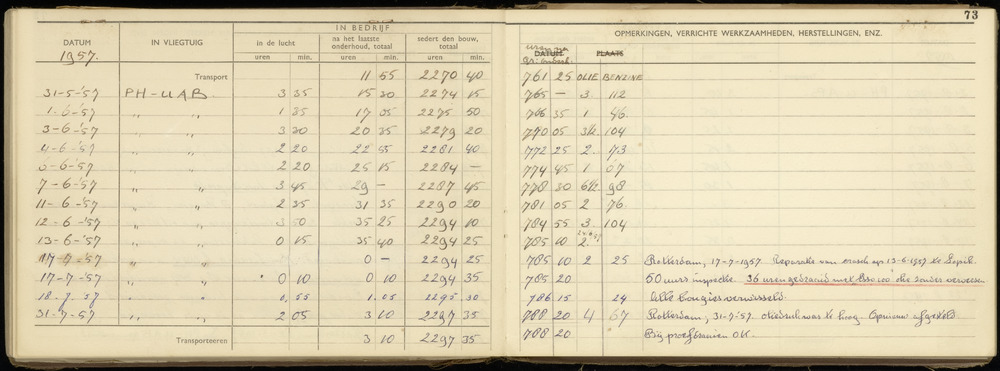 73
IN BEDRIJF
DATUM 1957. IN VLIEGTUIG in de lucht na het laatste onderhoud, totaal sedert den bouw, totaal OPMERKINGEN, VERRICHTE WERKZAAMHEDEN, HERSTELLINGEN, ENZ.
uren min. uren min. uren min. DATUM PLAATS
Transport 11 55 2270 40 761 25 OLIE BENZINE
31-5-'57 PH-UAB 3 35 15 30 2274 15 765 — 3 112
1-6-'57 " " 1 35 17 05 2275 50 766 35 1 46
3-6-'57 " " 3 30 20 35 2279 20 770 05 3½ 104
4-6-'57 " " 2 20 22 55 2281 40 772 25 2 73
6-6-'57 " " 2 20 25 15 2284 — 774 45 1 67
7-6-'57 " " 3 45 29 — 2287 45 778 30 6½ 98
11-6-'57 " " 2 35 31 35 2290 20 781 05 2 76
12-6-'57 " " 3 50 35 25 2294 10 784 55 3 104
13-6-'57 " " 0 15 35 40 2294 25 785 10 2
17-7-'57 " " 0 — 2294 25 785 10 2 25 Rotterdam, 17-7-1957 Reparatie van crash op 13-6-1957 te
17-7-'57 " " 0 10 0 10 2294 35 785 20 50 uurs inspectie. 36 uren gedraaid met Esso 100 olie zonder verversen
18-7-57 " " 0,55 1.05 2295 30 786 15 24 Alle bougies verwisseld.
31-7-'57 " " 2 05 3 10 2297 35 788 20 4 67 Rotterdam, 31-7-'57. oliedruk was te hoog. Opnieuw afgesteld.
Transporteeren 3 10 2297 35 788 20 Bij proefdraaien OK.